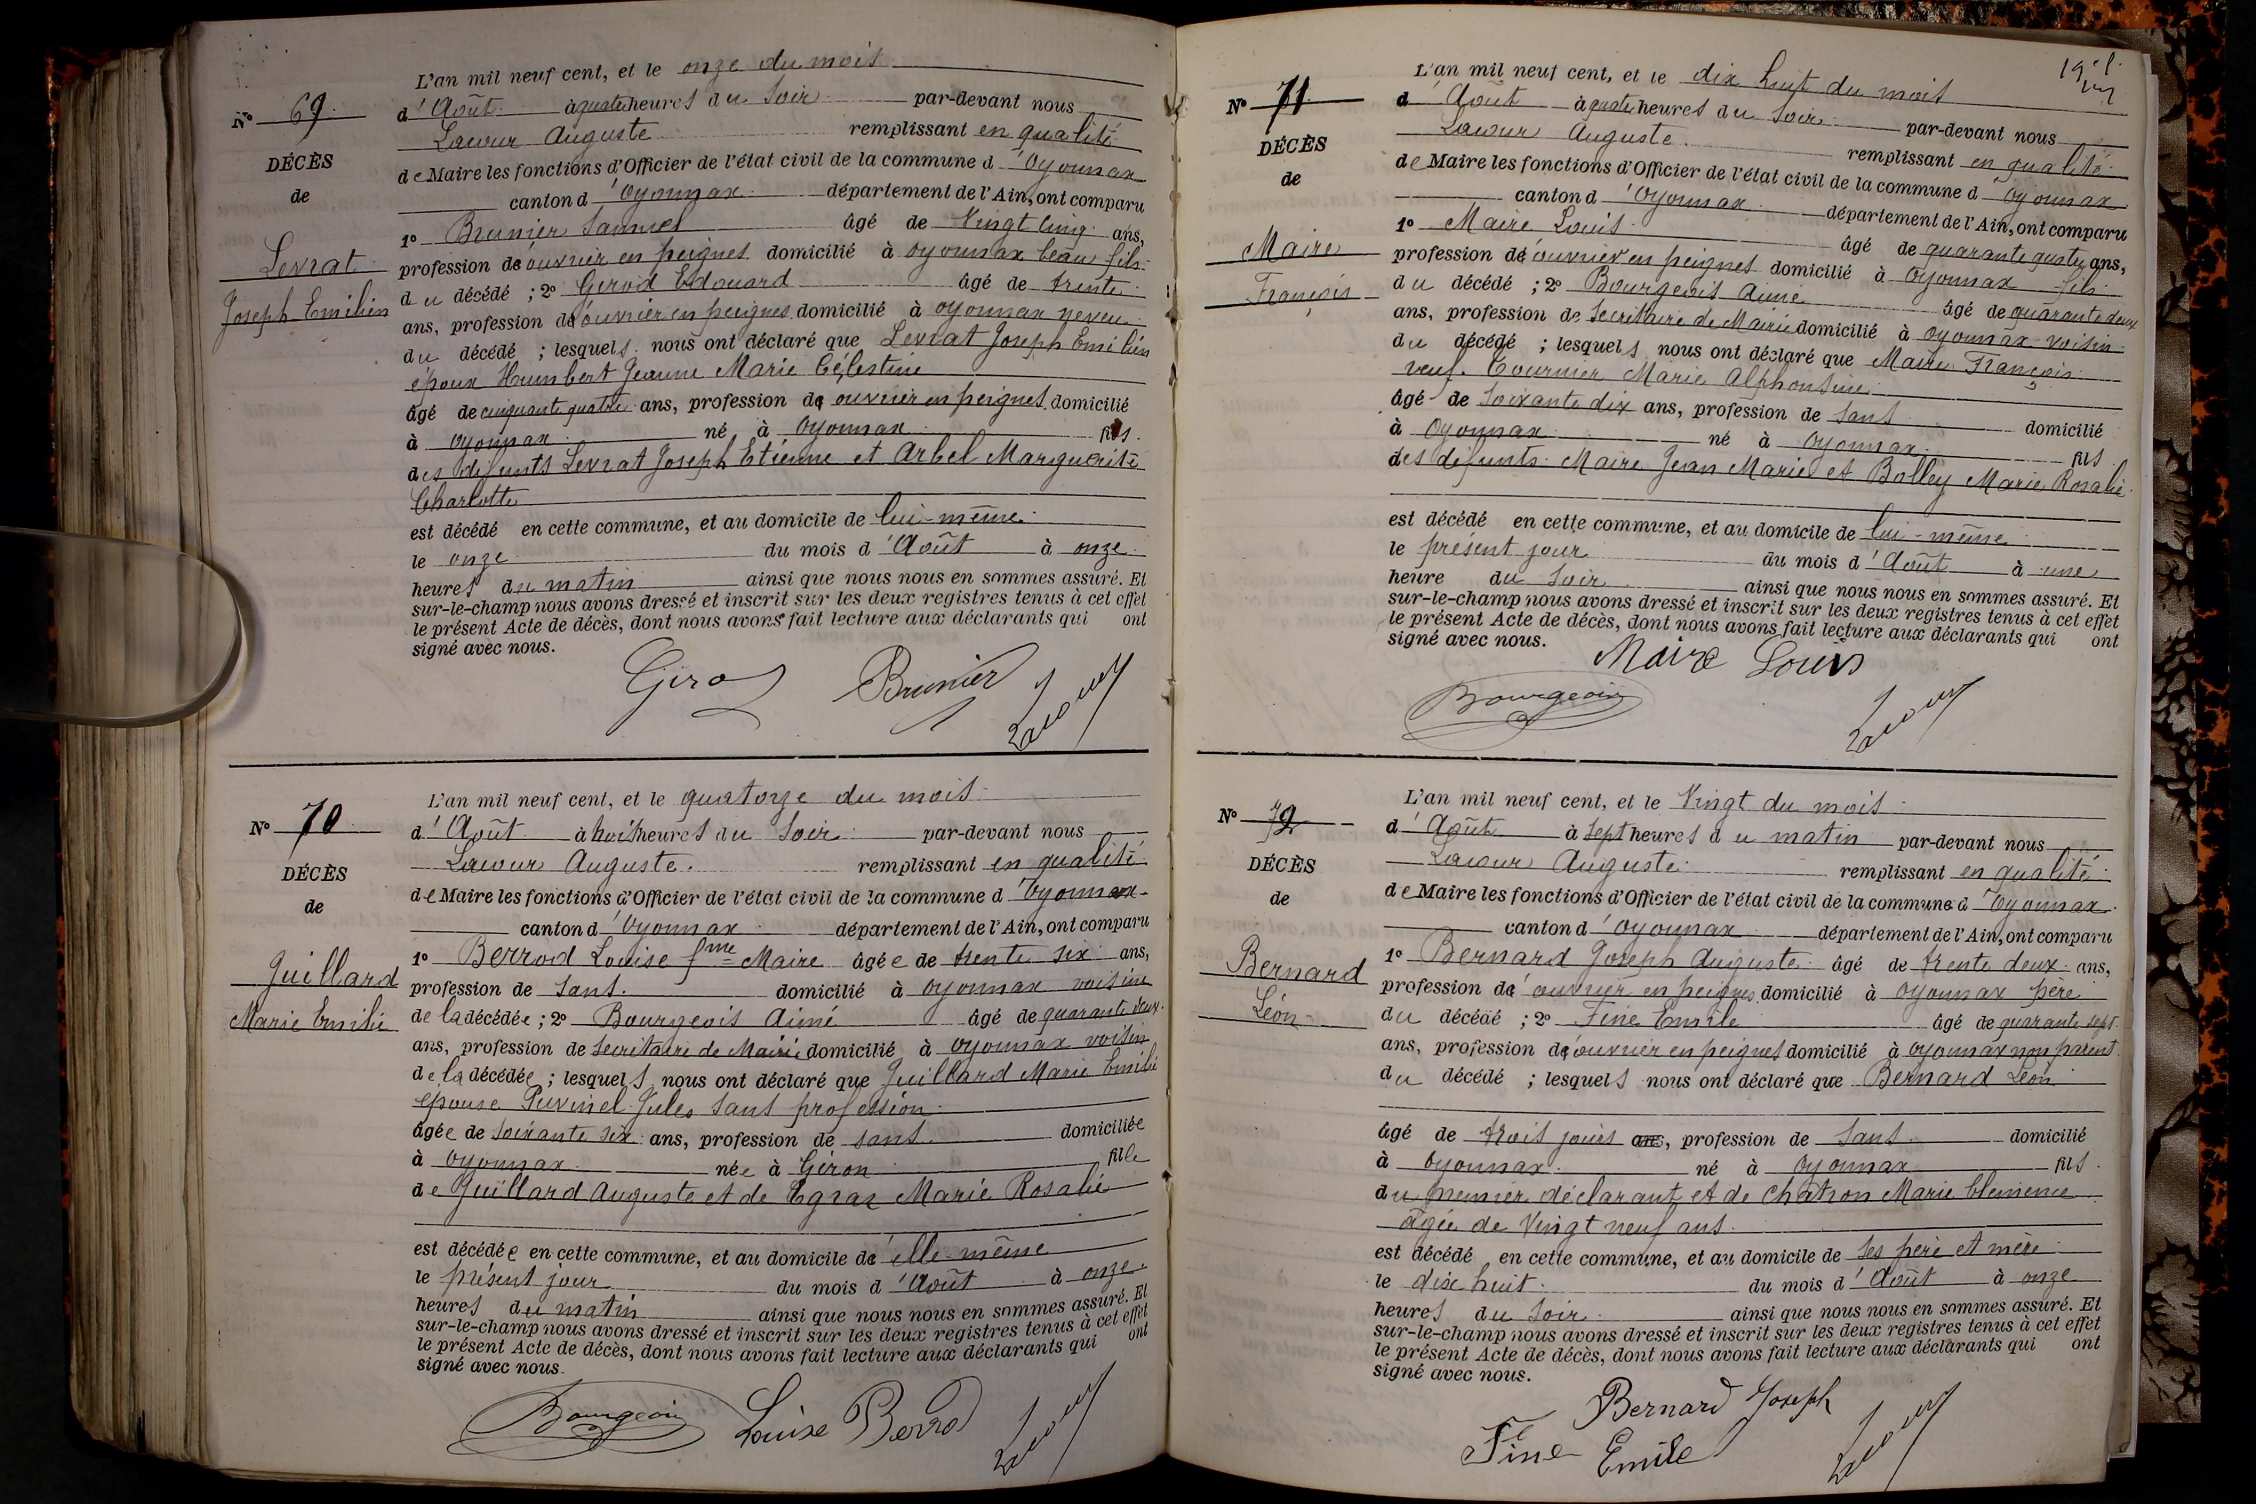 L'an mil neuf cent, et le onze du mois
N° 69. d'Août à quatre heures du soir par-devant nous
Lacour Auguste remplissant en qualité
DÉCÈS
de Maire les fonctions d'Officier de l'état civil de la commune d'Oyonnax
de
canton d'Oyonnax département de l'Ain, ont comparu
1° Brunier Samuel âgé de Vingt cinq ans,
Levrat
profession d'ouvrier en peignes domicilié à Oyonnax beau fils
Joseph Emilien
du décédé ; 2° Gerod Edouard âgé de trente
ans, profession d'ouvrier en peignes domicilié à Oyonnax neveu
du décédé ; lesquels nous ont déclaré que Levrat Joseph Emilien
époux Humbert Jeanne Marie Célestine
âgé de cinquante quatre ans, profession d'ouvrier en peignes domicilié
à Oyonnax né à Oyonnax fils
des défunts Levrat Joseph Etienne et Arbel Marguerite
Charlotte
est décédé en cette commune, et au domicile de lui-même
le onze du mois d'Août à onze
heures du matin ainsi que nous nous en sommes assuré. Et
sur-le-champ nous avons dressé et inscrit sur les deux registres tenus à cet effet
le présent Acte de décès, dont nous avons fait lecture aux déclarants qui ont
signé avec nous.
Girod Brunier Lacour
L'an mil neuf cent, et le quatorze du mois
N° 70 d'Août à huit heures du soir par-devant nous
Lacour Auguste. remplissant en qualité
DÉCÈS
de Maire les fonctions d'Officier de l'état civil de la commune d'Oyonnax
de
canton d'Oyonnax département de l'Ain, ont comparu
1° Berrod Louise fme Maire âgée de trente six ans,
Guillard
profession de sans. domicilié à Oyonnax voisine
Marie Emilie
de la décédée ; 2° Bourgeois Aimé âgé de quarante deux
ans, profession de Secrétaire de Mairie domicilié à Oyonnax voisin
de la décédée ; lesquels nous ont déclaré que Guillard Marie Emilie
épouse Puvinel Jules sans profession
âgée de soixante six ans, profession de sans domiciliée
à Oyonnax née à Géron fille
de Guillard Auguste et de Egraz Marie Rosalie
est décédée en cette commune, et au domicile d'elle-même
le présent jour du mois d'Août à onze
heures du matin ainsi que nous nous en sommes assuré. Et
sur-le-champ nous avons dressé et inscrit sur les deux registres tenus à cet effet
le présent Acte de décès, dont nous avons fait lecture aux déclarants qui ont
signé avec nous.
Bourgeois Louise Berrod Lacour
L'an mil neuf cent, et le dix huit du mois
N° 71 d'Août à quatre heures du soir par-devant nous
Lacour Auguste. remplissant en qualité
DÉCÈS
de Maire les fonctions d'Officier de l'état civil de la commune d'Oyonnax
de
canton d'Oyonnax département de l'Ain, ont comparu
1° Maire Louis âgé de quarante quatre ans,
Maire
profession d'ouvrier en peignes domicilié à Oyonnax fils
François
du décédé ; 2° Bourgeois Aimé âgé de quarante deux
ans, profession de Secrétaire de Mairie domicilié à Oyonnax voisin
du décédé ; lesquels nous ont déclaré que Maire François
veuf Tournier Marie Alphonsine
âgé de soixante dix ans, profession de sans domicilié
à Oyonnax né à Oyonnax fils
des défunts Maire Jean Marie et Bolley Marie Rosalie
est décédé en cette commune, et au domicile de lui-même
le présent jour du mois d'Août à une
heure du soir ainsi que nous nous en sommes assuré. Et
sur-le-champ nous avons dressé et inscrit sur les deux registres tenus à cet effet
le présent Acte de décès, dont nous avons fait lecture aux déclarants qui ont
signé avec nous.
Maire Louis
Bourgeois Lacour
L'an mil neuf cent, et le Vingt du mois
N° 72 d'Août à sept heures du matin par-devant nous
Lacour Auguste remplissant en qualité
DÉCÈS
de Maire les fonctions d'Officier de l'état civil de la commune d'Oyonnax
de
canton d'Oyonnax département de l'Ain, ont comparu
1° Bernard Joseph Auguste âgé de trente deux ans,
Bernard
profession d'ouvrier en peignes domicilié à Oyonnax père
Léon
du décédé ; 2° Fine Emile âgé de quarante sept
ans, profession d'ouvrier en peignes domicilié à Oyonnax non parent
du décédé ; lesquels nous ont déclaré que Bernard Léon
âgé de trois jours ans, profession de sans domicilié
à Oyonnax né à Oyonnax fils
du premier déclarant et de Chatron Marie Clémence
âgée de Vingt neuf ans
est décédé en cette commune, et au domicile de ses père et mère
le dix huit du mois d'Août à onze
heures du soir ainsi que nous nous en sommes assuré. Et
sur-le-champ nous avons dressé et inscrit sur les deux registres tenus à cet effet
le présent Acte de décès, dont nous avons fait lecture aux déclarants qui ont
signé avec nous.
Bernard Joseph
Fine Emile Lacour